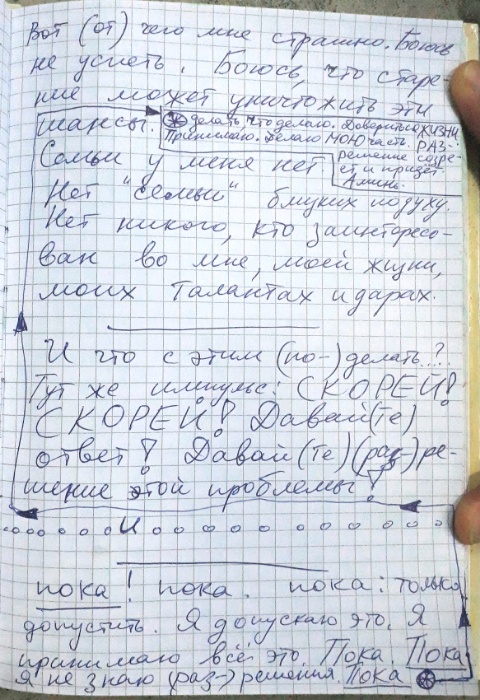 Вот (от) чего мне страшно. Боюсь
не успеть. Боюсь, что старе-
ние может уничтожить эти
шансы.
делать что делаю. Довериться ЖИЗНИ
Принимаю. Делаю МОЮ часть. РАЗ-
решение созре-
ет и придёт.
Аминь.
Семьи у меня нет
Нет "семьи" близких по духу.
Нет никого, кто заинтересо-
ван во мне, моей жизни,
моих талантах и дарах.
И что с этим (по-) делать..?..
Тут же импульс: СКОРЕЙ!
СКОРЕЙ! Давай(те)
ответ! Давай(те) (раз-)ре-
шение этой проблемы!
И
пока! пока. пока: только
допустить. Я допускаю это. Я
принимаю всё это. Пока. Пока
я не знаю (раз-) решения. Пока